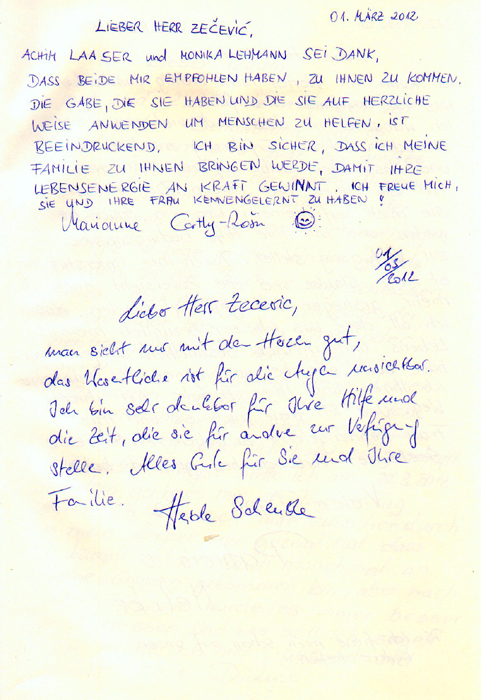 01. MÄRZ 2012
LIEBER HERR ZEČEVIĆ,
ACHIM LAASER und MONIKA LEHMANN SEI DANK,
DASS BEIDE MIR EMPFOHLEN HABEN, ZU IHNEN ZU KOMMEN.
DIE GABE, DIE SIE HABEN UND DIE SIE AUF HERZLICHE
WEISE ANWENDEN UM MENSCHEN ZU HELFEN, IST
BEEINDRUCKEND. ICH BIN SICHER, DASS ICH MEINE
FAMILIE ZU IHNEN BRINGEN WERDE, DAMIT IHRE
LEBENSENERGIE AN KRAFT GEWINNT. ICH FREUE MICH,
SIE UND IHRE FRAU KENNENGELERNT ZU HABEN!
Marianne
01/03/2012
Lieber Herr Zecevic,
man sieht nur mit dem Herzen gut,
das Wesentliche ist für die Augen unsichtbar.
Ich bin sehr dankbar für Ihre Hilfe und
die Zeit, die sie für andre zur Verfügung
stelle. Alles Gute für Sie und Ihre
Familie.